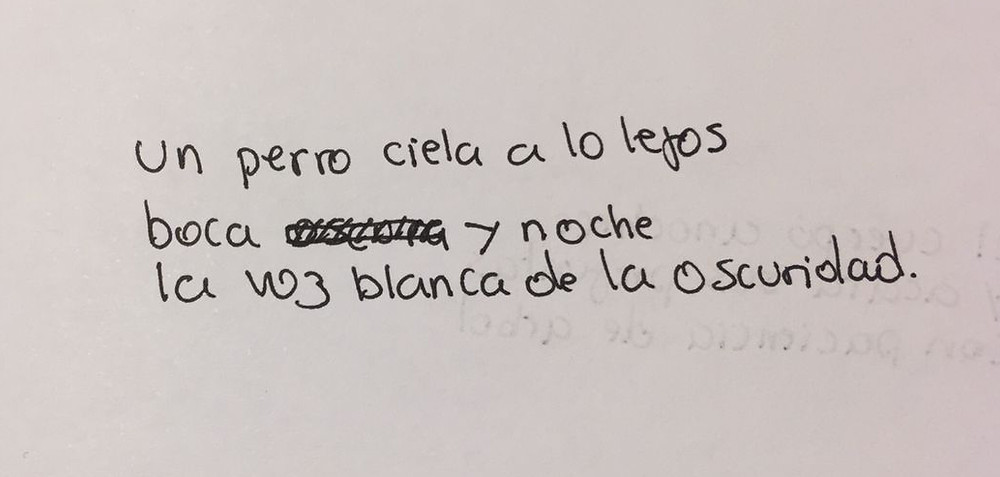 un perro ciela a lo lejos
boca y noche
la voz blanca de la oscuridad.